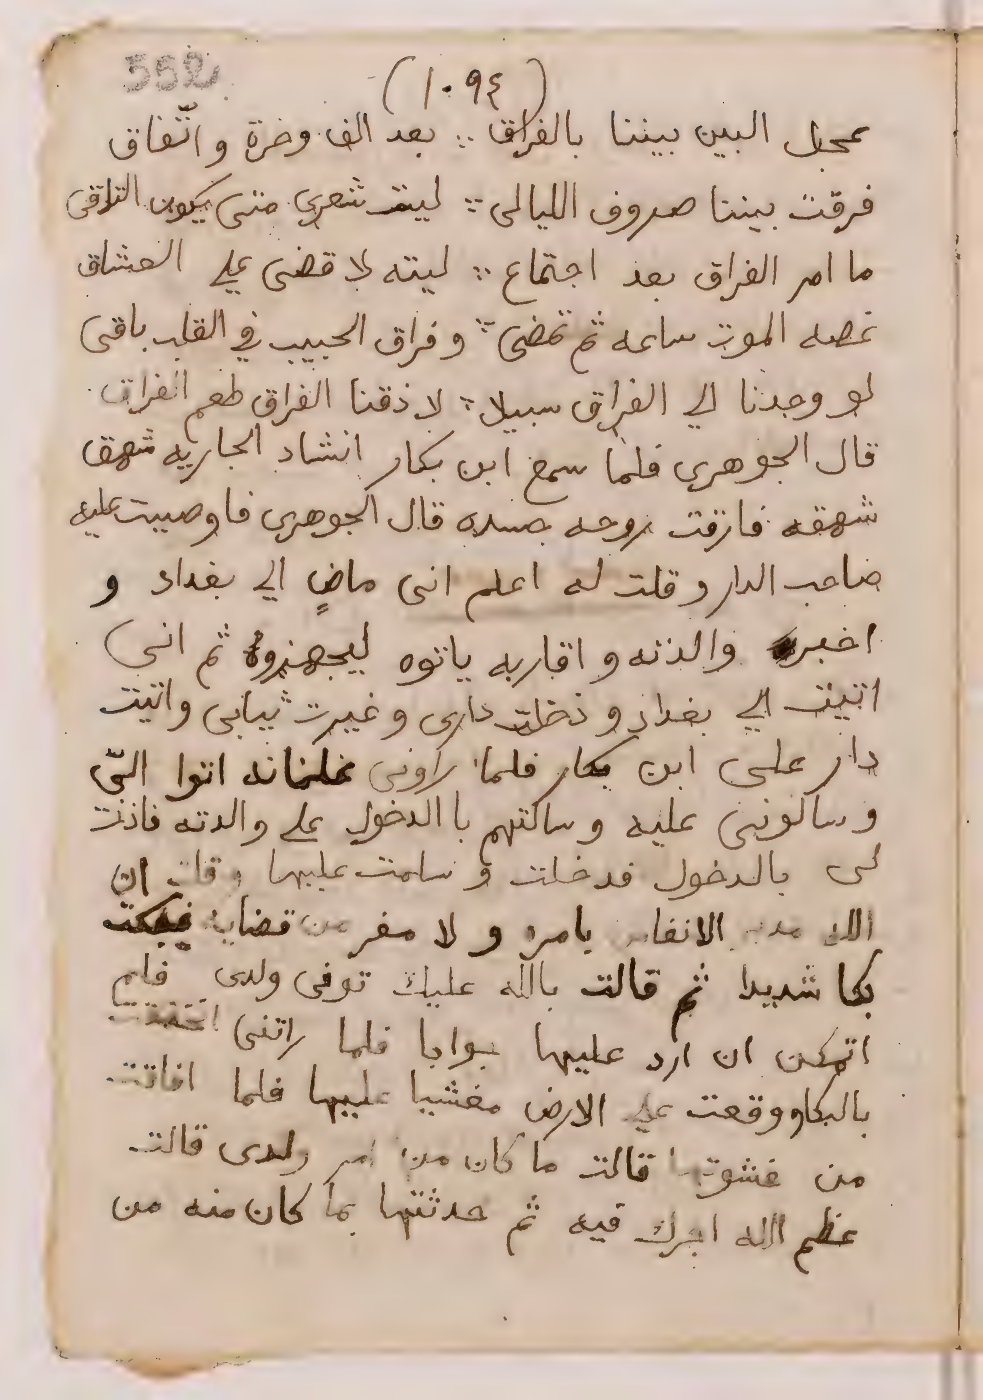 552
(١٠٩٤)
عجل البين بيننا بالفراق ∴ بعد الف وضرة واتّفاق
فرقت بيننا صروف الليالى ∴ ليت شعرى متى يكون التلاقى
ما امر الفراق بعد اجتماع ∴ ليته لا قضى على العشاق
غصه الموت ساعه ثم تمضى ∴ وفراق الحبيب في القلب باقى
لو وجدنا الي الفراق سبيلا ∴ لاذقنا الفراق طعم الفراق
قال الجوهرى فلما سمع ابن بكار انشاد الجاريه شهق
شهقه فارقت روحه جسده قال الجوهرى فاوصيت عليه
صاحب الدار وقلت له اعلم انى ماضٍ الي بغداد و
اخبر والدته واقاربه ياتوه ليجهزوه ثم انى
اتيت الي بغداد ودخلت دارى وغيرت ثيابى واتيت
دار على ابن بكار فلما راونى غلمانه اتوا اليّ
وسالونى عليه وسالتهم باالدخول على والدته فاذنت
لى بالدخول فدخلت وسلمت عليها وقلت ان
الله مدبر الانفاس بامره ولا مفر من قضايه فبكت
بكا شديدا ثم قالت بالله عليك توفى ولدى فلم
اتمكن ان ارد عليها جوابا فلما راتنى اختنقت
بالبكا ووقعت على الارض مغشيا عليها فلما افاقت
من غشوتها قالت ما كان من امر ولدى قالت
عظم الله اجرك فيه ثم حدثتها بما كان منه من